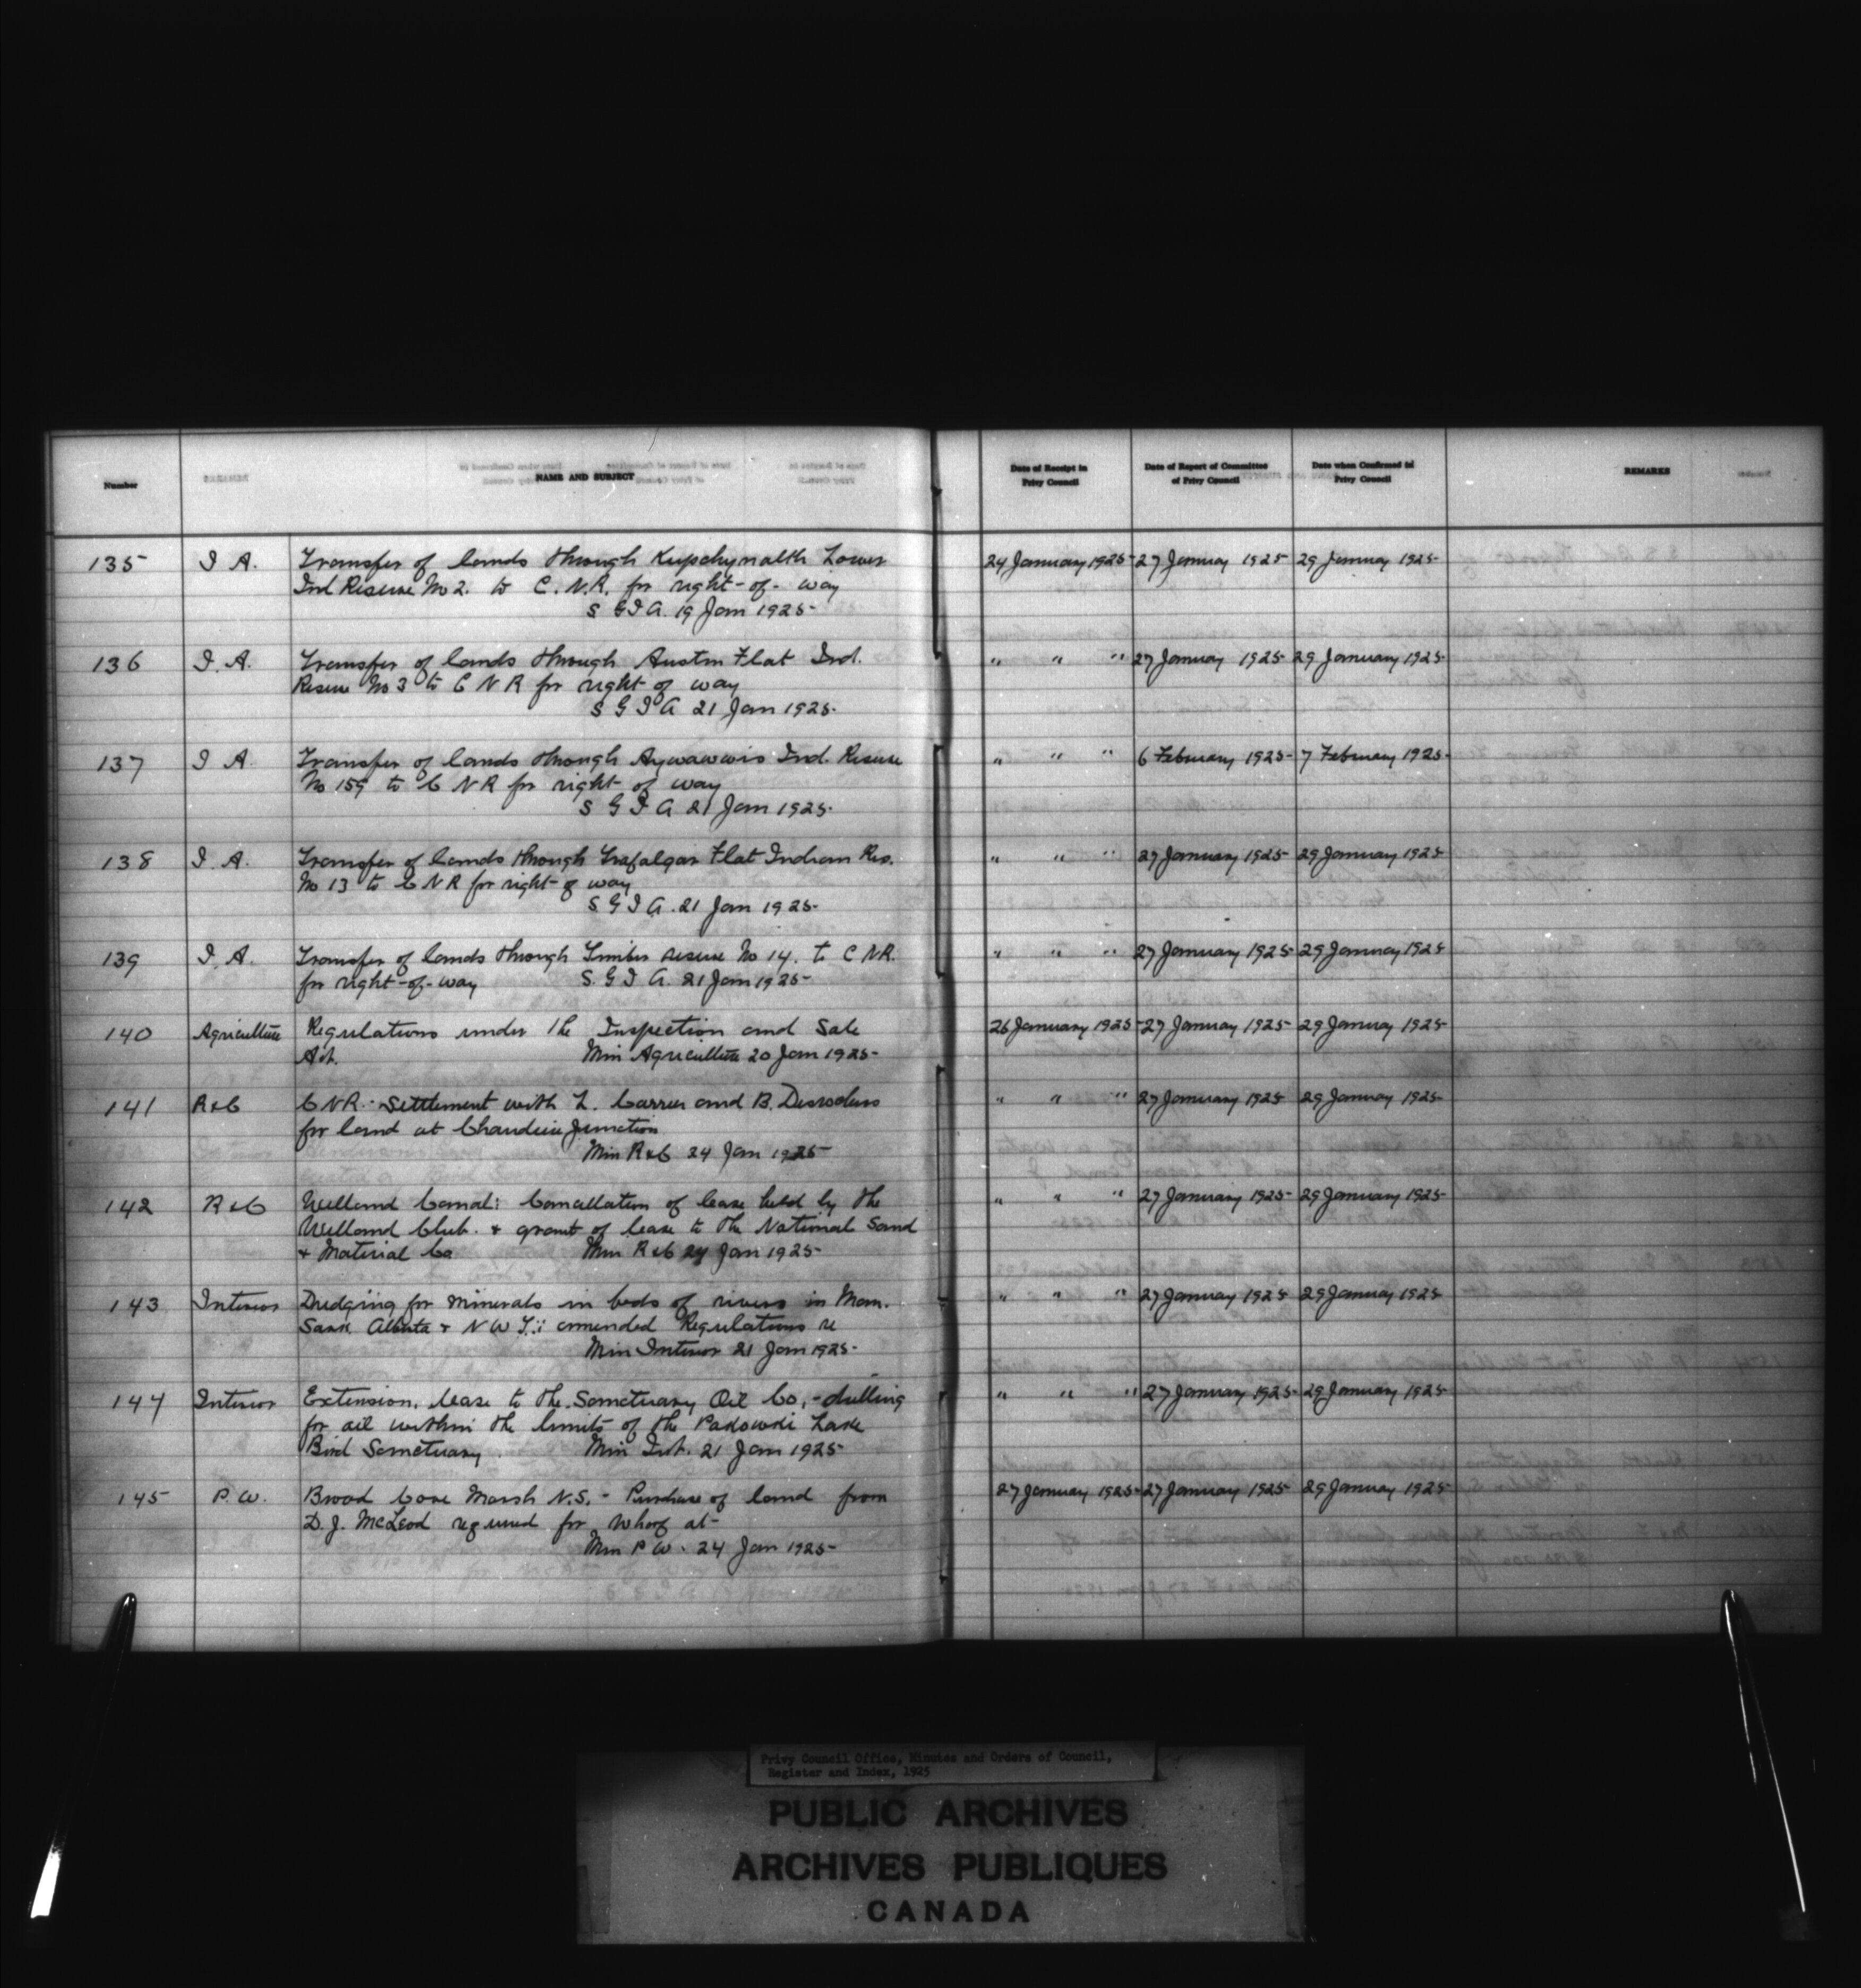 Number
NAME AND SUBJECT
Date of Receipt in Privy Council
Date of Report of Committee of Privy Council
Date when Confirmed in Privy Council
REMARKS
135 I A. Transfer of lands through Kupchynalth Lower 24 January 1925 27 January 1925 29 January 1925
Ind Reserve No 2. to C.N.R. for right-of-way
S G I A. 19 Jan 1925
136 I. A. Transfer of lands through Austin Flat Ind. " " " 27 January 1925 29 January 1925
Reserve No 3 to C N R for right of way
S G I A 21 Jan 1925.
137 I A Transfer of lands through Aywawwis Ind. Reserve " " " 6 February 1925 7 February 1925
No 159 to C N R for right of way
S G I A 21 Jan 1925.
138 I. A. Transfer of lands through Trafalgar Flat Indian Res. " " " 27 January 1925 29 January 1925
No 13 to C N R for right-of way
S G I A. 21 Jan 1925.
139 I. A. Transfer of lands through Timber reserve No 14. to C NR. " " " 27 January 1925 29 January 1925
for right-of-way S. G I A. 21 Jan 1925
140 Agriculture Regulations under the Inspection and Sale 26 January 1925 27 January 1925 29 January 1925
Act. Min Agriculture 20 Jan 1925
141 R&C C N R. Settlement with L. Carrier and B. Desrochers " " " 27 January 1925 29 January 1925
for land at Chaudiere Junction
Min R&C 24 Jan 1925
142 R&C Welland Canal: Cancellation of lease held by the " " " 27 January 1925 29 January 1925
Welland Club. & grant of lease to the National Sand
& Material Co Min R&C 24 Jan 1925
143 Interior Dredging for minerals in beds of rivers in Man. " " " 27 January 1925 29 January 1925
Sask Alberta & N W T.: amended Regulations re
Min Interior 21 Jan 1925.
144 Interior Extension, lease to the Sanctuary Oil Co, - drilling " " " 27 January 1925 29 January 1925
for oil within the limits of the Pakowki Lake
Bird Sanctuary Min Int. 21 Jan 1925
145 P. W. Broad Cove Marsh N.S. - Purchase of land from 27 January 1925 27 January 1925 29 January 1925
D. J. McLeod required for wharf at-
Min P W. 24 Jan 1925
Privy Council Office, Minutes and Orders of Council,
Register and Index, 1925
PUBLIC ARCHIVES
ARCHIVES PUBLIQUES
CANADA